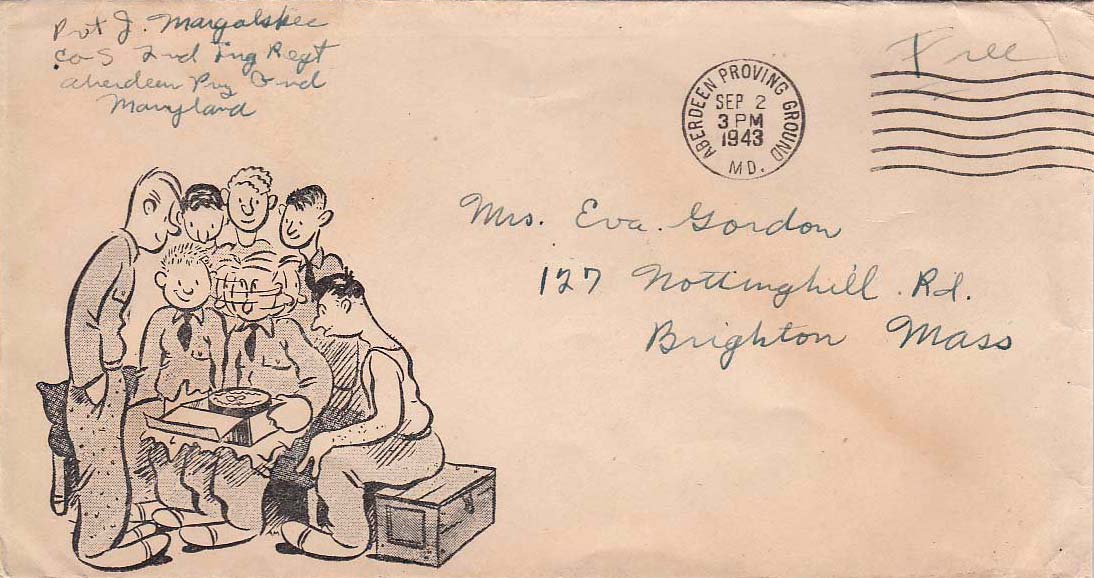 Pvt J. Margolskee
Co S 2nd Tng Regt
Aberdeen Prvg Grnd
Maryland
ABERDEEN PROVING GROUND
SEP 2
3 PM
1943
MD.
Free
Mrs. Eva Gordon
127 Nottinghill Rd.
Brighton Mass